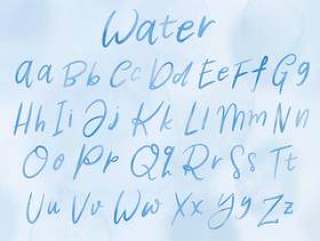 Water
Aa Bb Cc Dd Ee Ff Gg
Hh Ii Jj Kk Ll Mm Nn
Oo Pp Qq Rr Ss Tt
Uu Vv Ww Xx Yy Zz